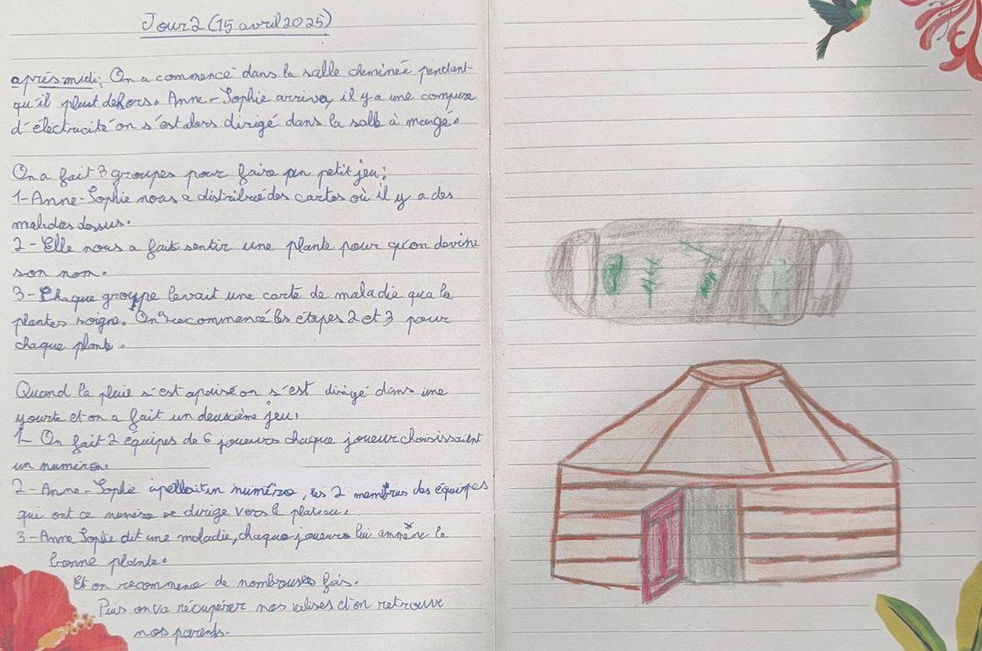 Jour 2 (15 avril 2025)
après midi; On a commencé dans la salle cheminée pendant
qu'il pleut dehors. Anne-Sophie arriva, il y a une compure
d'électricité on s'est alors dirigé dans la salle à mangé.
On a fait 3 groupes pour faire un petit jeu:
1-Anne-Sophie nous a distribué des cartes où il y a des
maladies dessus.
2-Elle nous a fait sentir une plante pour qu'on devine
son nom.
3-Chaque groupe levait une carte de maladie que la
plantes soigne. On recommencé les étapes 2 et 3 pour
chaque plante.
Quand la pluie s'est apaisé on s'est dirigé dans une
yourte et on a fait un deuxième jeu:
1- On fait 2 équipes de 6 joueurs chaque joueur choisissaient
un numéro.
2-Anne-Sophie apellait un numéro, les 2 membres des équipes
qui ont ce numéro se dirige vers le plateau.
3-Anne Sophie dit une maladie, chaque joueurs lui amnène la
bonne plante.
Et on recommence de nombreuses fois.
Puis on va récupérer nos valises et on retrouve
nos parents.